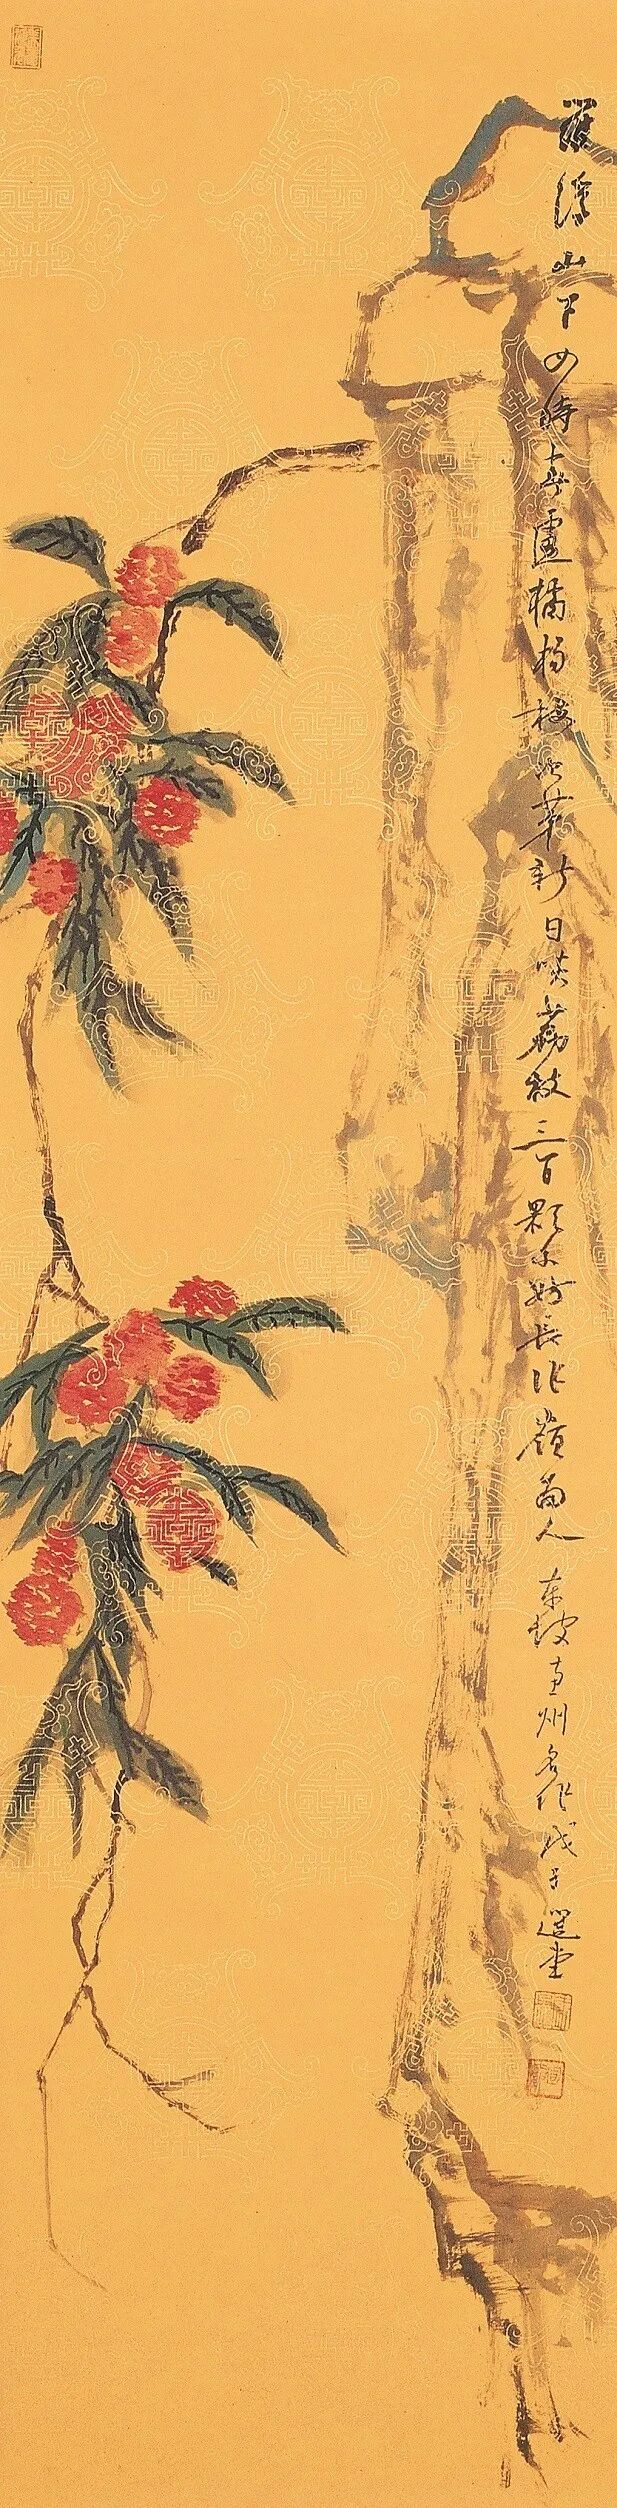 羅浮山下四時春盧橘楊梅次第新日啖荔枝三百顆不妨長作嶺南人 東坡惠州名作 戊子選堂